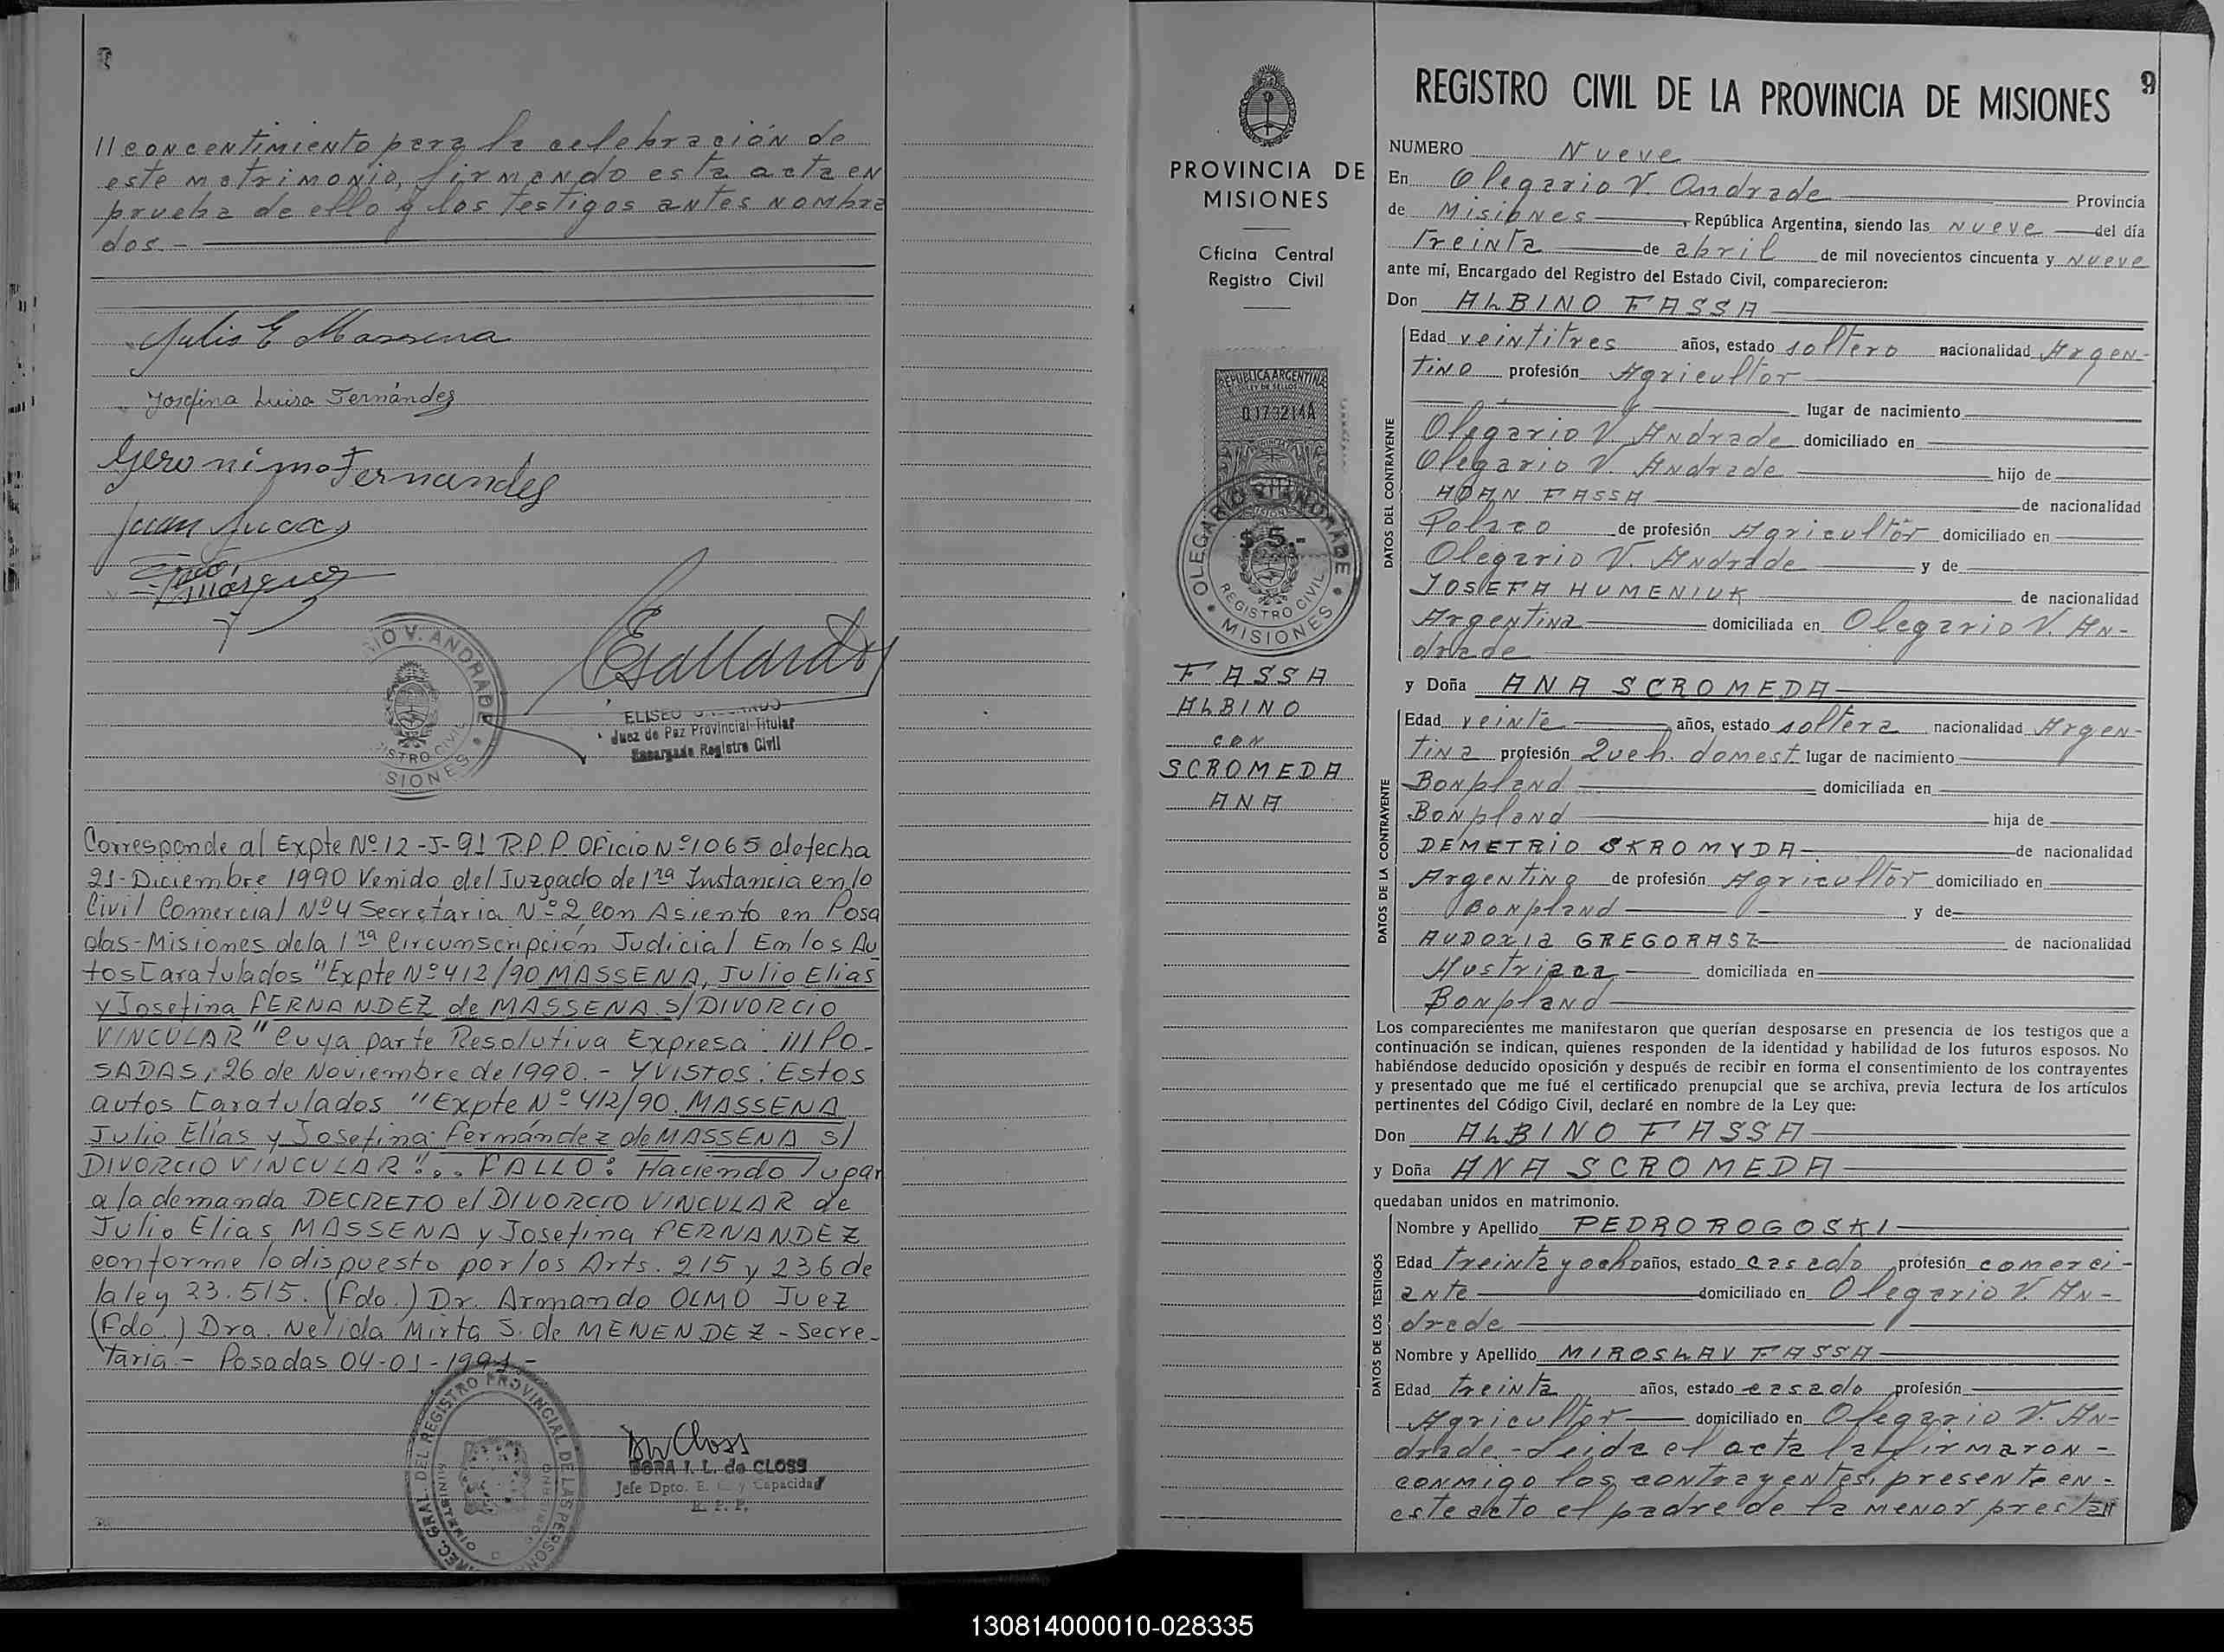 //concentimiento para la celebración de
este matrimonio, firmando esta acta en
prueba de ello y los testigos antes nombra
dos.-
Julio E Massena
Josefina Luisa Fernández
Geronimo Fernandes
Juan Lucas
Marquez
Gallardo
OLEGARIO V. ANDRADE
REGISTRO CIVIL
MISIONES
ELISEO GALLARDO
Juez de Paz Provincial Titular
Encargado Registro Civil
Corresponde al Expte Nº 12-J-91 R.P.P. Oficio Nº 1065 de fecha
21-Diciembre 1990 Venido del Juzgado de 1ra Instancia en lo
Civil Comercial Nº 4 Secretaria Nº 2 con Asiento en Posa
das-Misiones de la 1ra Circunscripción Judicial En los Au
tos Caratulados "Expte Nº 412/90 MASSENA, Julio Elias
y Josefina FERNANDEZ de MASSENA S/DIVORCIO
VINCULAR" Cuya parte Resolutiva Expresa: ///PO-
SADAS, 26 de Noviembre de 1990.- Y VISTOS: Estos
autos Caratulados "Expte Nº 412/90 MASSENA
Julio Elías y Josefina Fernández de MASSENA S/
DIVORCIO VINCULAR"... FALLO: Haciendo lugar
a la demanda DECRETO el DIVORCIO VINCULAR de
Julio Elias MASSENA y Josefina FERNANDEZ
conforme lo dispuesto por los Arts. 215 y 236 de
la ley 23.515. (Fdo.) Dr. Armando OLMO Juez
(Fdo.) Dra. Nelida Mirta S. de MENENDEZ - Secre-
taria - Posadas 04-01-1991-
DIREC. GRAL. DEL REGISTRO PROVINCIAL DE LAS PERSONAS
MINISTERIO
DORA I. L. de CLOSS
Jefe Dpto. E. C. y Capacidad
R. P. P.
PROVINCIA DE
MISIONES
Oficina Central
Registro Civil
REPUBLICA ARGENTINA
LEY DE SELLOS
0173214A
$ 5.-
OLEGARIO V. ANDRADE
REGISTRO CIVIL
MISIONES
FASSA
ALBINO
con
SCROMEDA
ANA
9
REGISTRO CIVIL DE LA PROVINCIA DE MISIONES
NUMERO Nueve
En Olegario V. Andrade Provincia
de Misiones, República Argentina, siendo las nueve del día
Treinta de abril de mil novecientos cincuenta y nueve
ante mí, Encargado del Registro del Estado Civil, comparecieron:
Don ALBINO FASSA
DATOS DEL CONTRAYENTE
Edad veintitres años, estado soltero nacionalidad Argen-
tino profesión Agricultor
lugar de nacimiento
Olegario V. Andrade domiciliado en
Olegario V. Andrade hijo de
ADAN FASSA de nacionalidad
Polaco de profesión Agricultor domiciliado en
Olegario V. Andrade y de
JOSEFA HUMENIUK de nacionalidad
Argentina domiciliada en Olegario V. An-
drade
y Doña ANA SCROMEDA
DATOS DE LA CONTRAYENTE
Edad veinte años, estado soltera nacionalidad Argen-
tina profesión Queh. domest. lugar de nacimiento
Bonpland domiciliada en
Bonpland hija de
DEMETRIO SKROMYDA de nacionalidad
Argentino de profesión Agricultor domiciliado en
Bonpland y de
AUDOXIA GREGORASZ de nacionalidad
Austriaca domiciliada en
Bonpland
Los comparecientes me manifestaron que querían desposarse en presencia de los testigos que a
continuación se indican, quienes responden de la identidad y habilidad de los futuros esposos. No
habiéndose deducido oposición y después de recibir en forma el consentimiento de los contrayentes
y presentado que me fué el certificado prenupcial que se archiva, previa lectura de los artículos
pertinentes del Código Civil, declaré en nombre de la Ley que:
Don ALBINO FASSA
y Doña ANA SCROMEDA
quedaban unidos en matrimonio.
DATOS DE LOS TESTIGOS
Nombre y Apellido PEDRO ROGOSKI
Edad treinta y ocho años, estado casado profesión comerci-
ante domiciliado en Olegario V. An-
drade
Nombre y Apellido MIROSLAV FASSA
Edad treinta años, estado casado profesión
Agricultor domiciliado en Olegario V. An-
drade.-Leida el acta la firmaron-
conmigo los contrayentes, presente en-
este acto el padre de la menor presta//
130814000010-028335